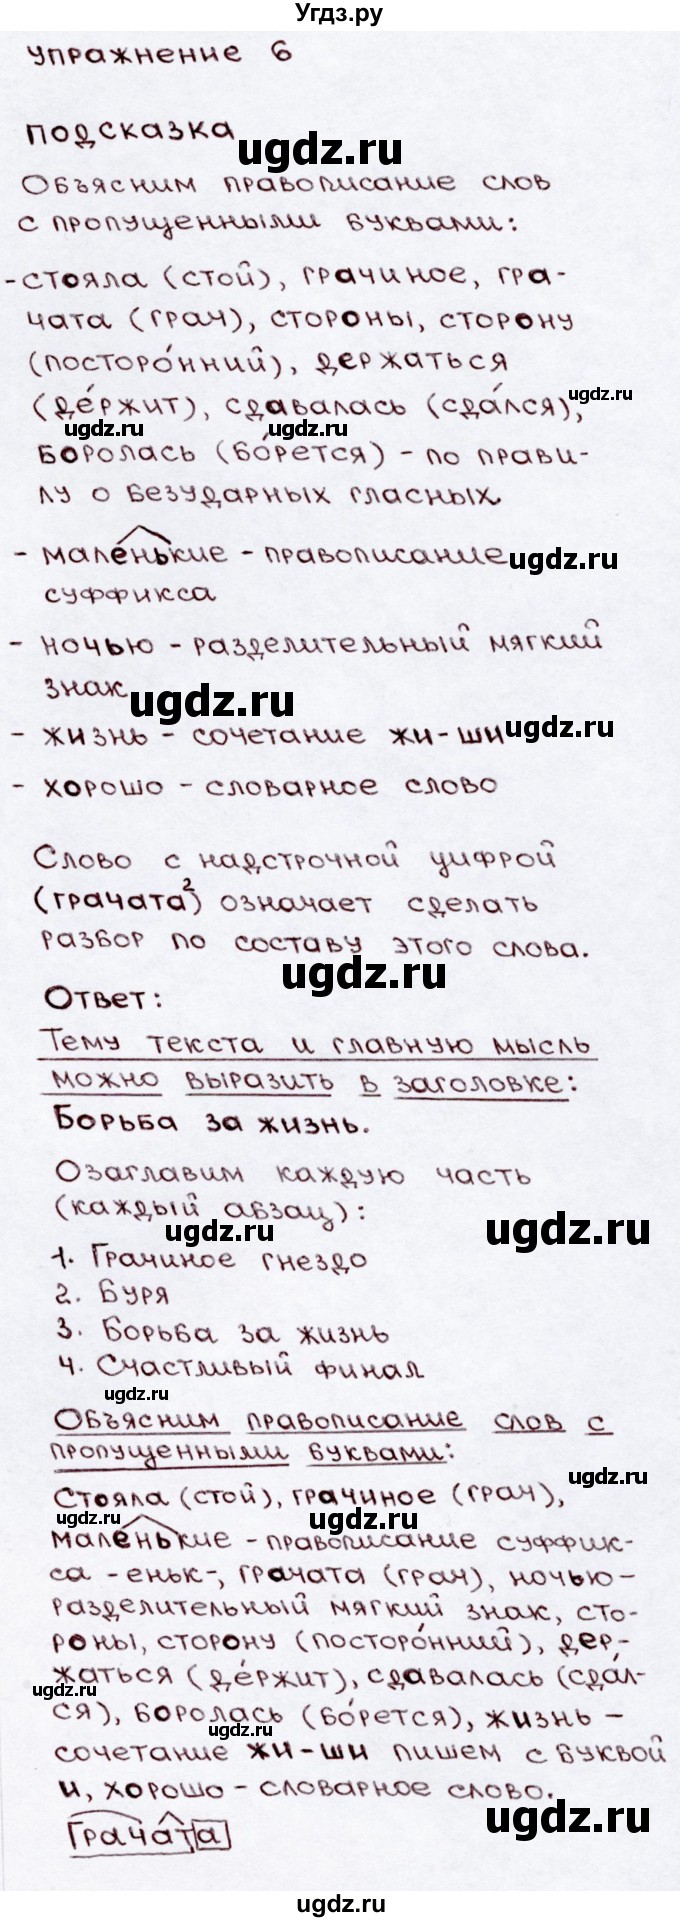 Угдз.ру
Упражнение 6
Подсказка
ugdz.ru
Объясним правописание слов
с пропущенными буквами:
- стояла (стой), грачиное, гра-
чата (грач), стороны, сторону
(посторо́нний), держаться
ugdz.ru
(де́ржит), сдавалась (сда́лся),
ugdz.ru ugdz.ru
боролась (бо́рется) - по прави-
лу о безударных гласных.
- маленькие - правописание
ugdz.ru
суффикса
- ночью - разделительный мягкий
знак
ugdz.ru
- жизнь - сочетание жи-ши
ugdz.ru
- хорошо - словарное слово
Слово с надстрочной цифрой
(грачата²) означает сделать
разбор по составу этого слова.
ugdz.ru
Ответ:
Тему текста и главную мысль
можно выразить в заголовке:
Борьба за жизнь.
Озаглавим каждую часть
(каждый абзац):
ugdz.ru ugdz.ru
1. Грачиное гнездо
2. Буря
3. Борьба за жизнь
4. Счастливый финал
ugdz.ru
Объясним правописание слов с
пропущенными буквами:
ugdz.ru
Стояла (стой), грачиное (грач),
ugdz.ru ugdz.ru
маленькие - правописание суффик-
са -еньк-, грачата (грач), ночью -
разделительный мягкий знак, сто-
роны, сторону (посторо́нний), дер-
жаться (де́ржит), сдавалась (сда́л-
ugdz.ru
ся), боролась (бо́рется), жизнь -
ugdz.ru
сочетание жи-ши пишем с буквой
и, хорошо - словарное слово.
ugdz.ru
Грачата
ugdz.ru